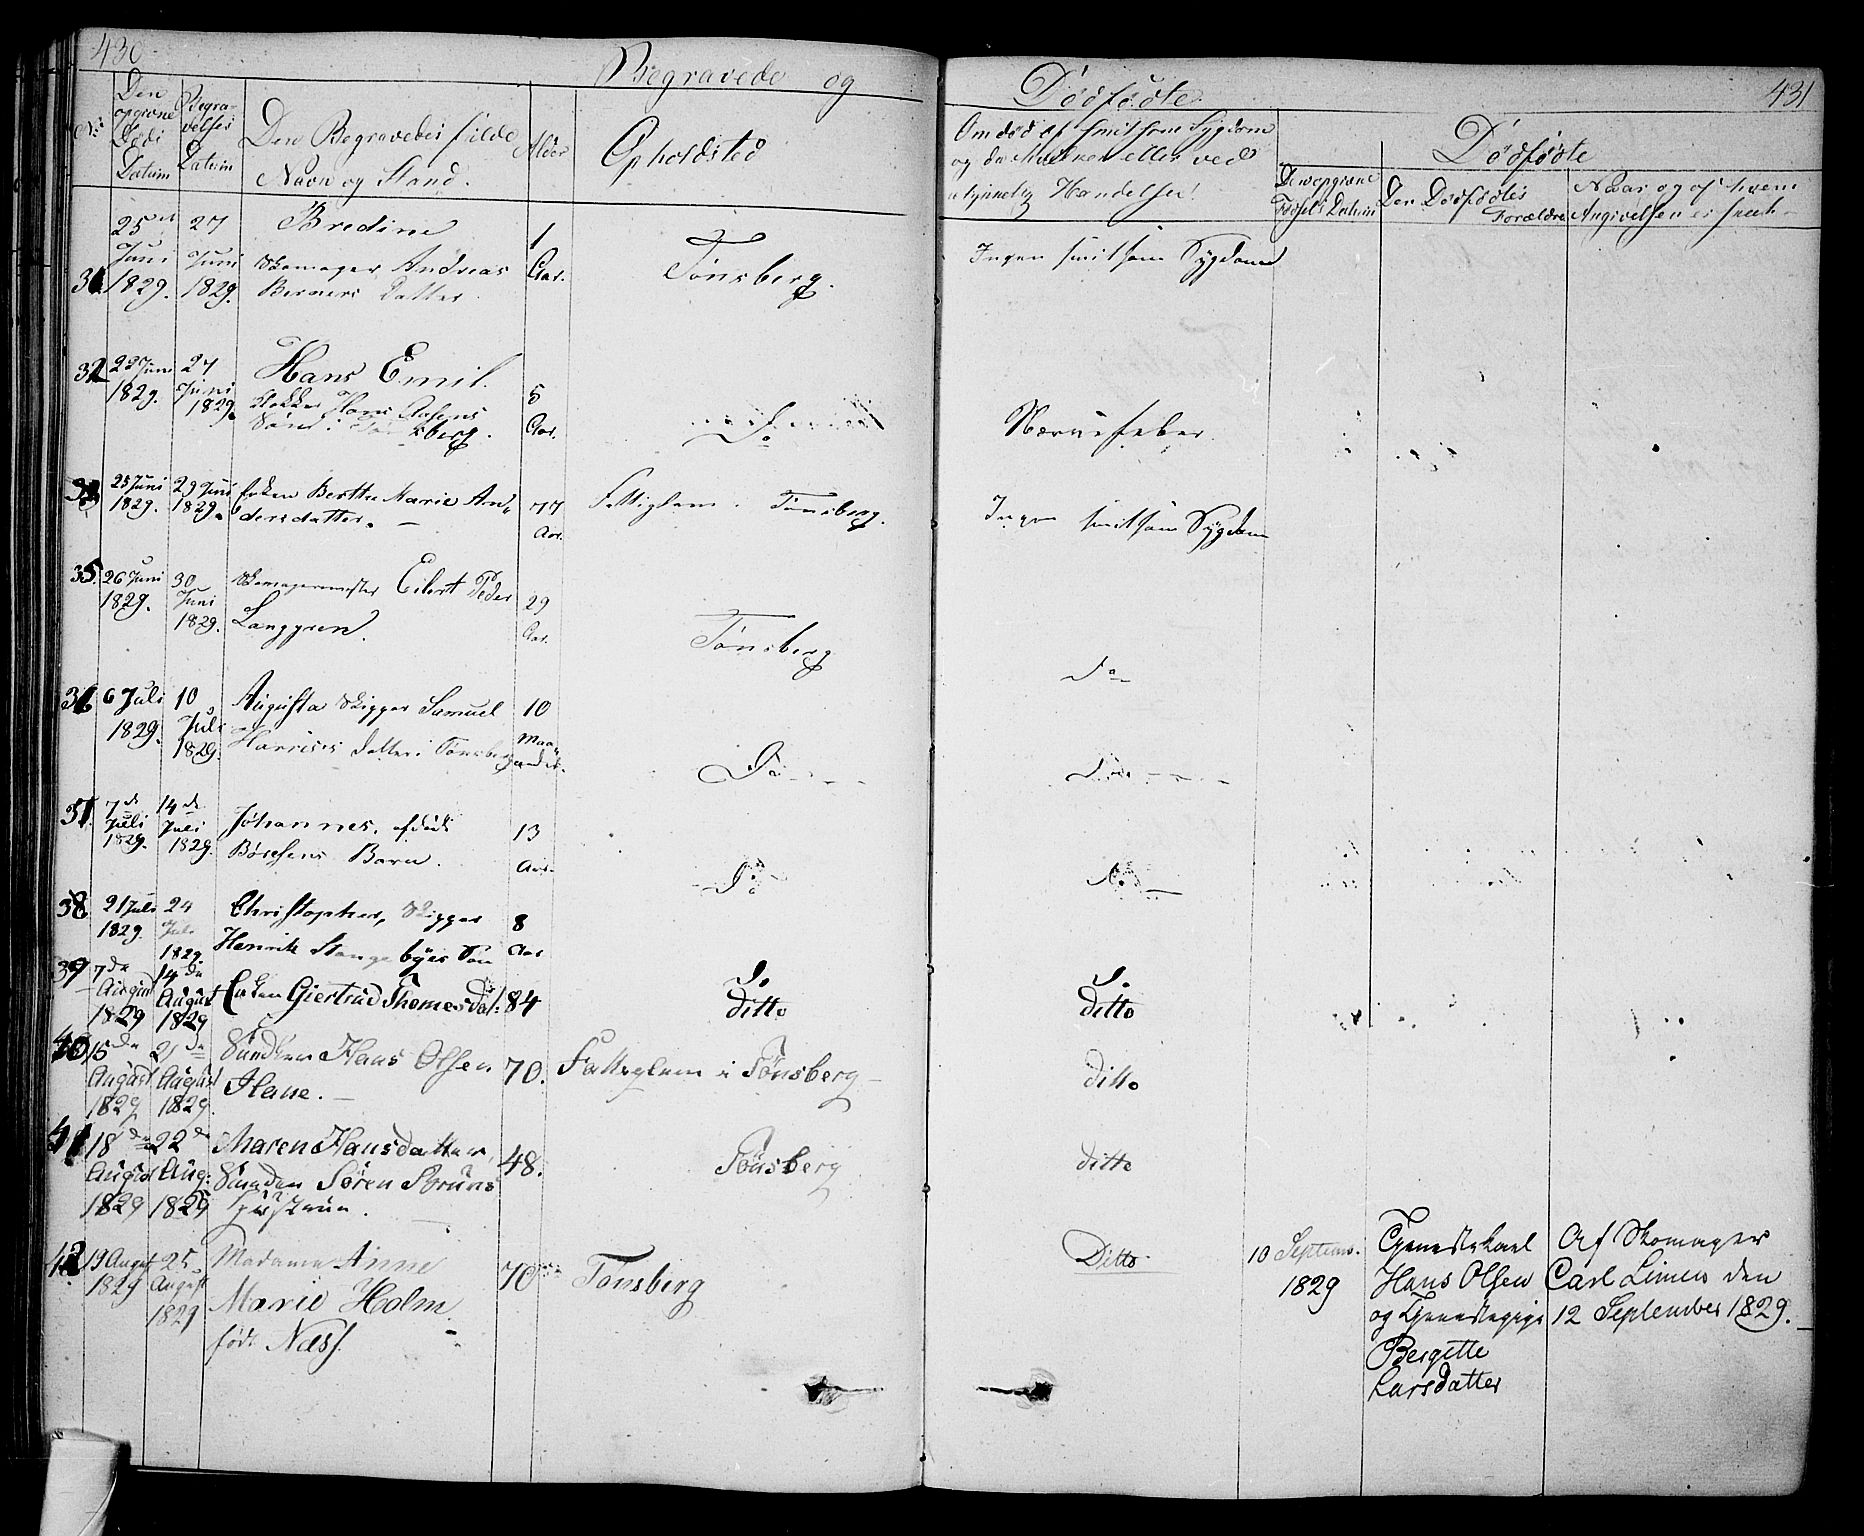 430
Begravede og
Dødfødte
431
No
Den opgivne Døds Datum
Begravelses Datum
Den Begravedes fulde Navn og Stand.
Alder
Opholdsted
Om død af smitsom Sygdom
og da hvilken eller ved
ulykkelig Hændelse!
Dødfødte
Den opgivne Fødsels Datum
Den Dødfødtes Forældre
Naar og af hvem Angivelsen er skeet
31
25
Juni
1829.
27
Juni
1829.
Bredine
Skomager Andreas
Berners Datter
1
Aar.
Tønsberg.
Ingen smitsom Sygdom
32
Juni
1829.
27
Juni
1829.
Hans Emil.
Hans
Søn i Tønsberg.
5
Aar.
Do
Nervefeber.
25 Juni
1829.
29 Juni
1829.
Enken Berthe Marie An-
dersdatter.
77
Aar.
Fattiglem. Tønsberg.
Ingen smitsom Sygdom
35.
26 Juni
1829.
30
Juni
1829.
Skomagermester Eilert Peder
Langgren.
29
Aar.
Tønsberg
Do
36
6 Juli
1829.
10
Juli
1829.
Augusta Skipper Samuel
Datter i Tønsberg
10
Maaneder.
Do
Do
37.
7de
Juli
1829.
14de
Juli
1829.
Johannes, afdøde
Barn.
13
Aar.
Do
Do
38
21 Juli
1829.
24
Juli
1829.
Christopher, Skipper
Henrik Stangebyes Søn
8
Aar
Do
Do
39
7de
August
1829
14de
August
1829
Enken Giertrud Thomesdat:
84
ditto
ditto
40
15de
August
1829
21de
August
1829.
Hans Olsen
70.
Fattiglem i Tønsberg
ditto
41
18de
August
1829
22de
Aug:
1829
Maren Hansdatter,
Søren Bruns
Hustrue.
48.
Tønsberg
ditto
42
19 August
1829
25
August
1829
Madame Anne
Marie Holm
født Næss.
70
Tønsberg
Ditto
10 Septemb.
1829
Tjenestekarl
Hans Olsen
og Tjenestepige
Bergette
Larsdatter
Af Skomager
Carl Limen den
12 September 1829.